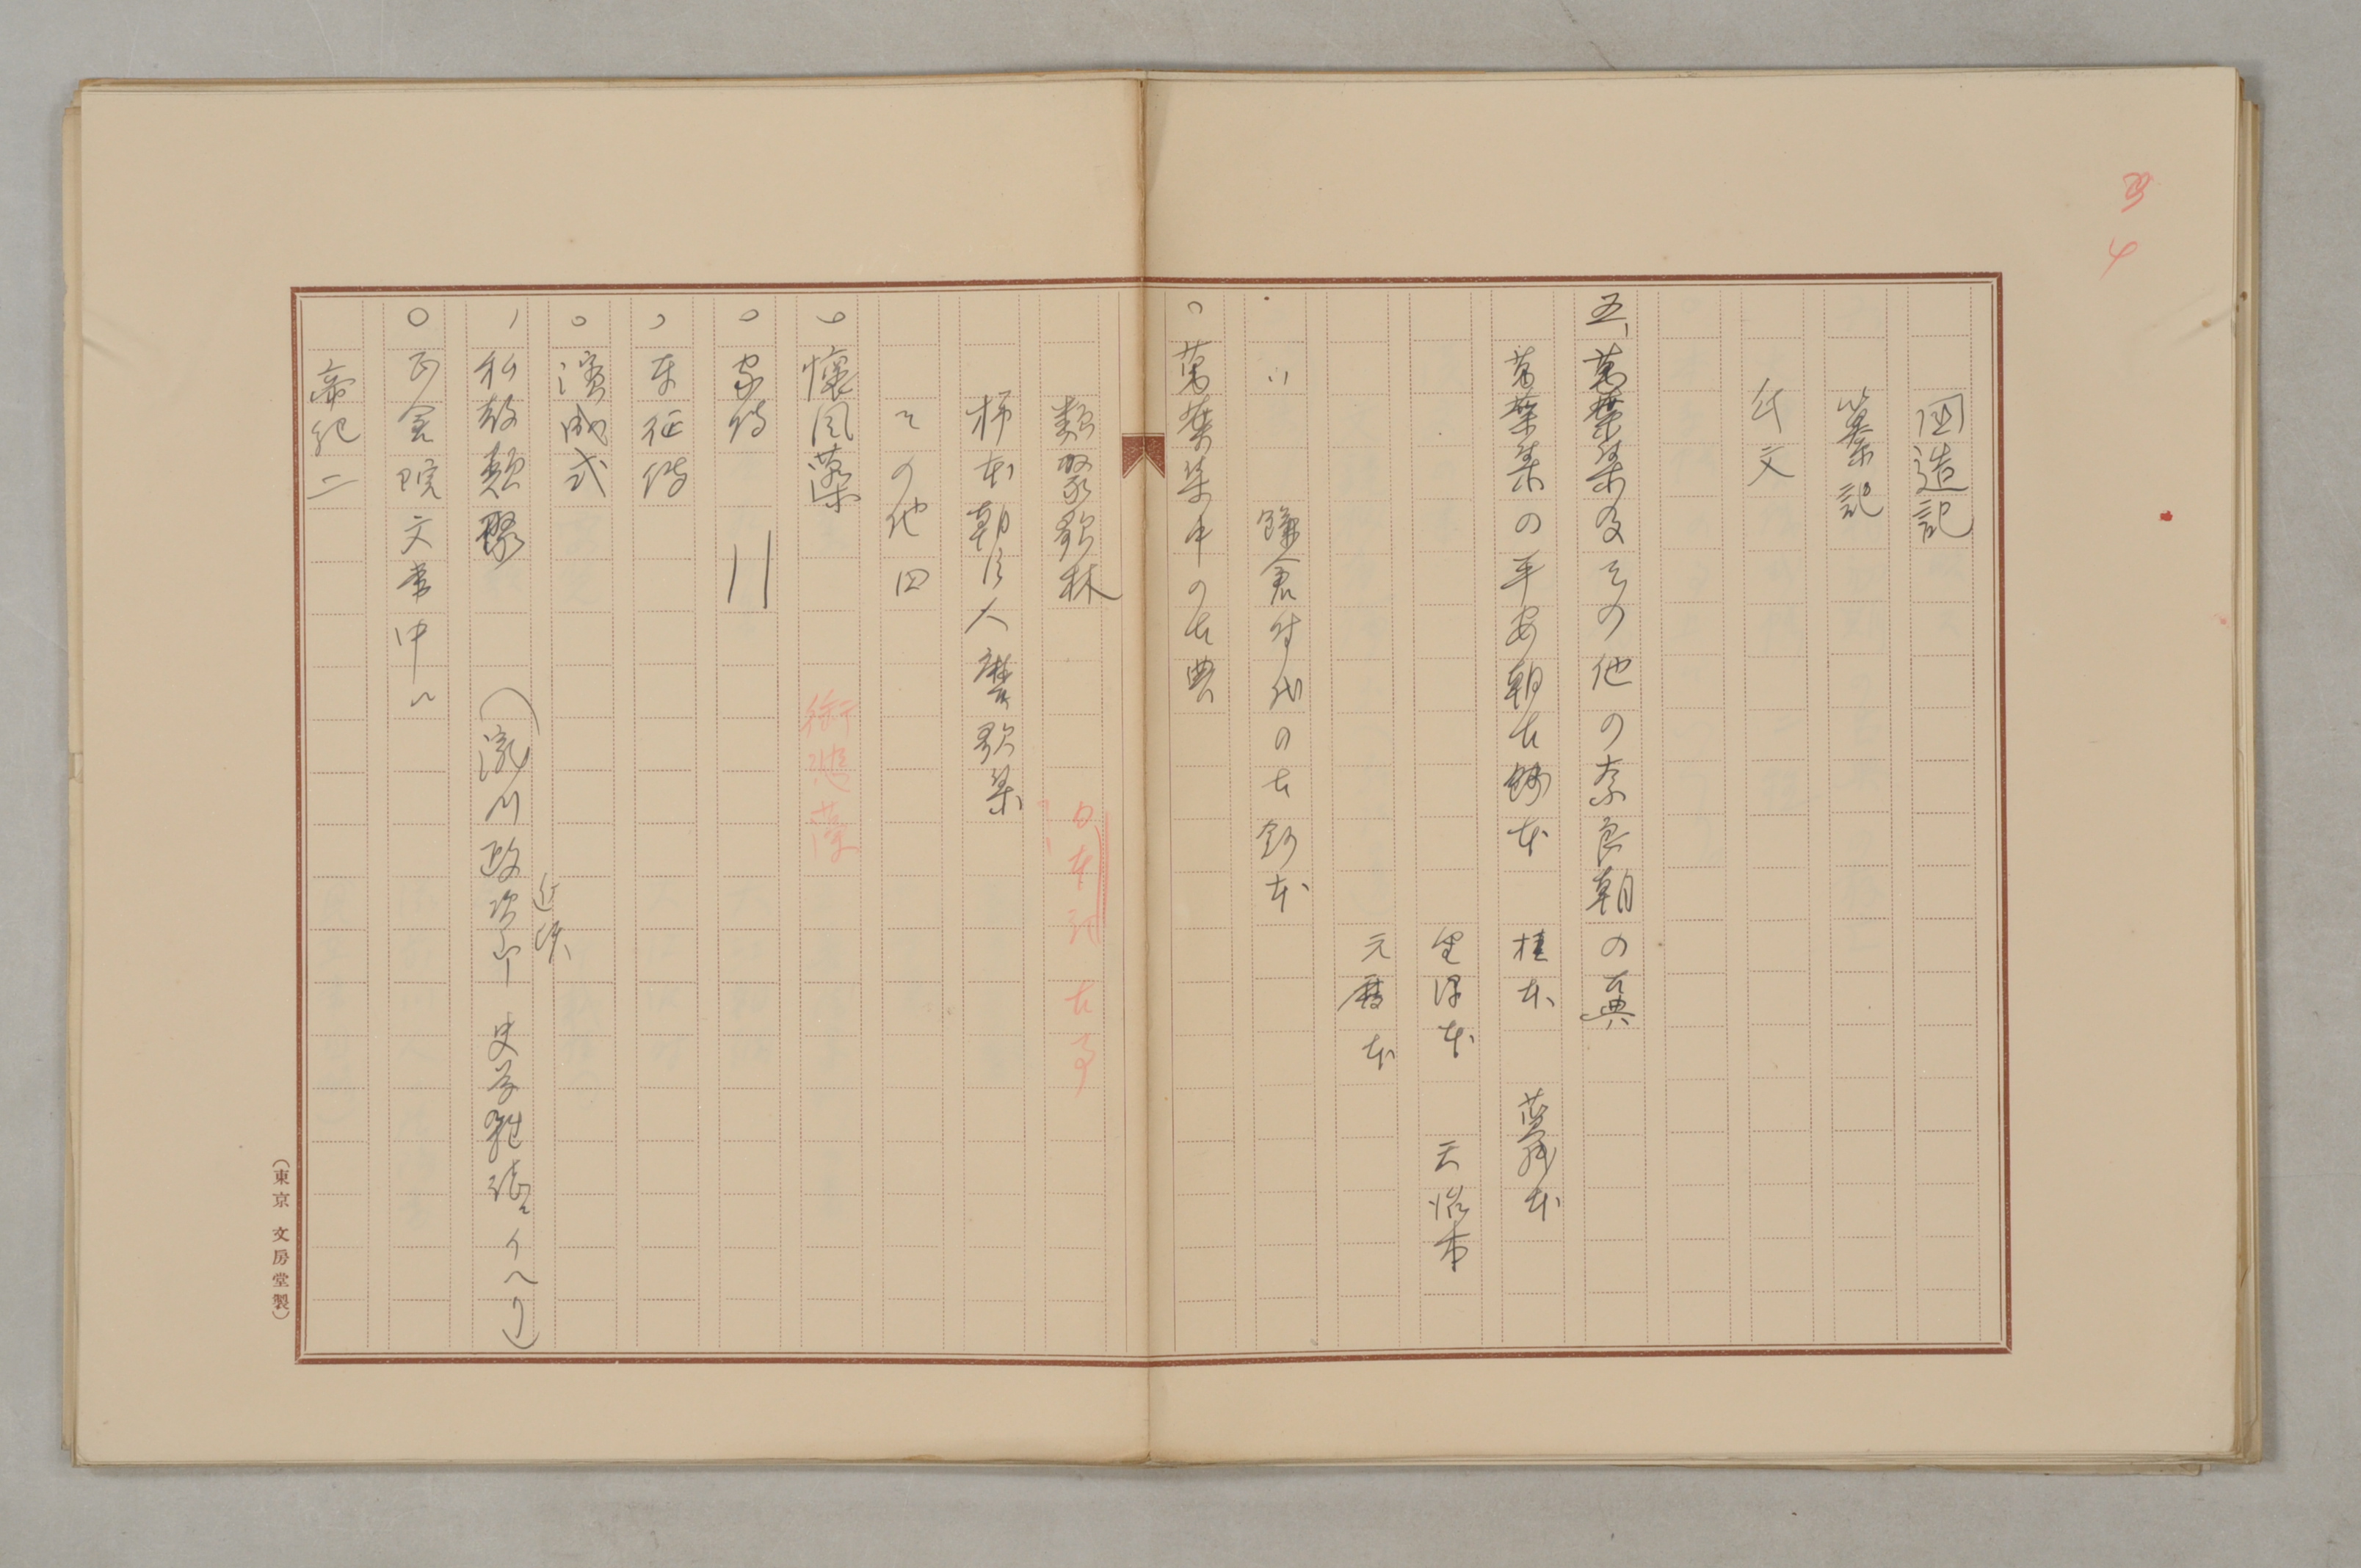 4
国造記
纂記
氏文
五、萬葉集及その他の奈良朝の典
萬葉集の平安朝古鈔本 桂本 藍紙本
金澤本 天治本
元暦本
〃 鎌倉時代の古鈔本
○萬葉集中の古典
類聚歌林
日本紀 古事
柿本朝臣人麿歌集
その他四
○懐風藻
銜悲藻
○家傳
○東征傳
○濱成式
○私教類聚 (瀧川政次郎 近時 史学雑誌ニイヘリ)
○正倉院文書中ニ
帝紀二
(東京 文房堂製)